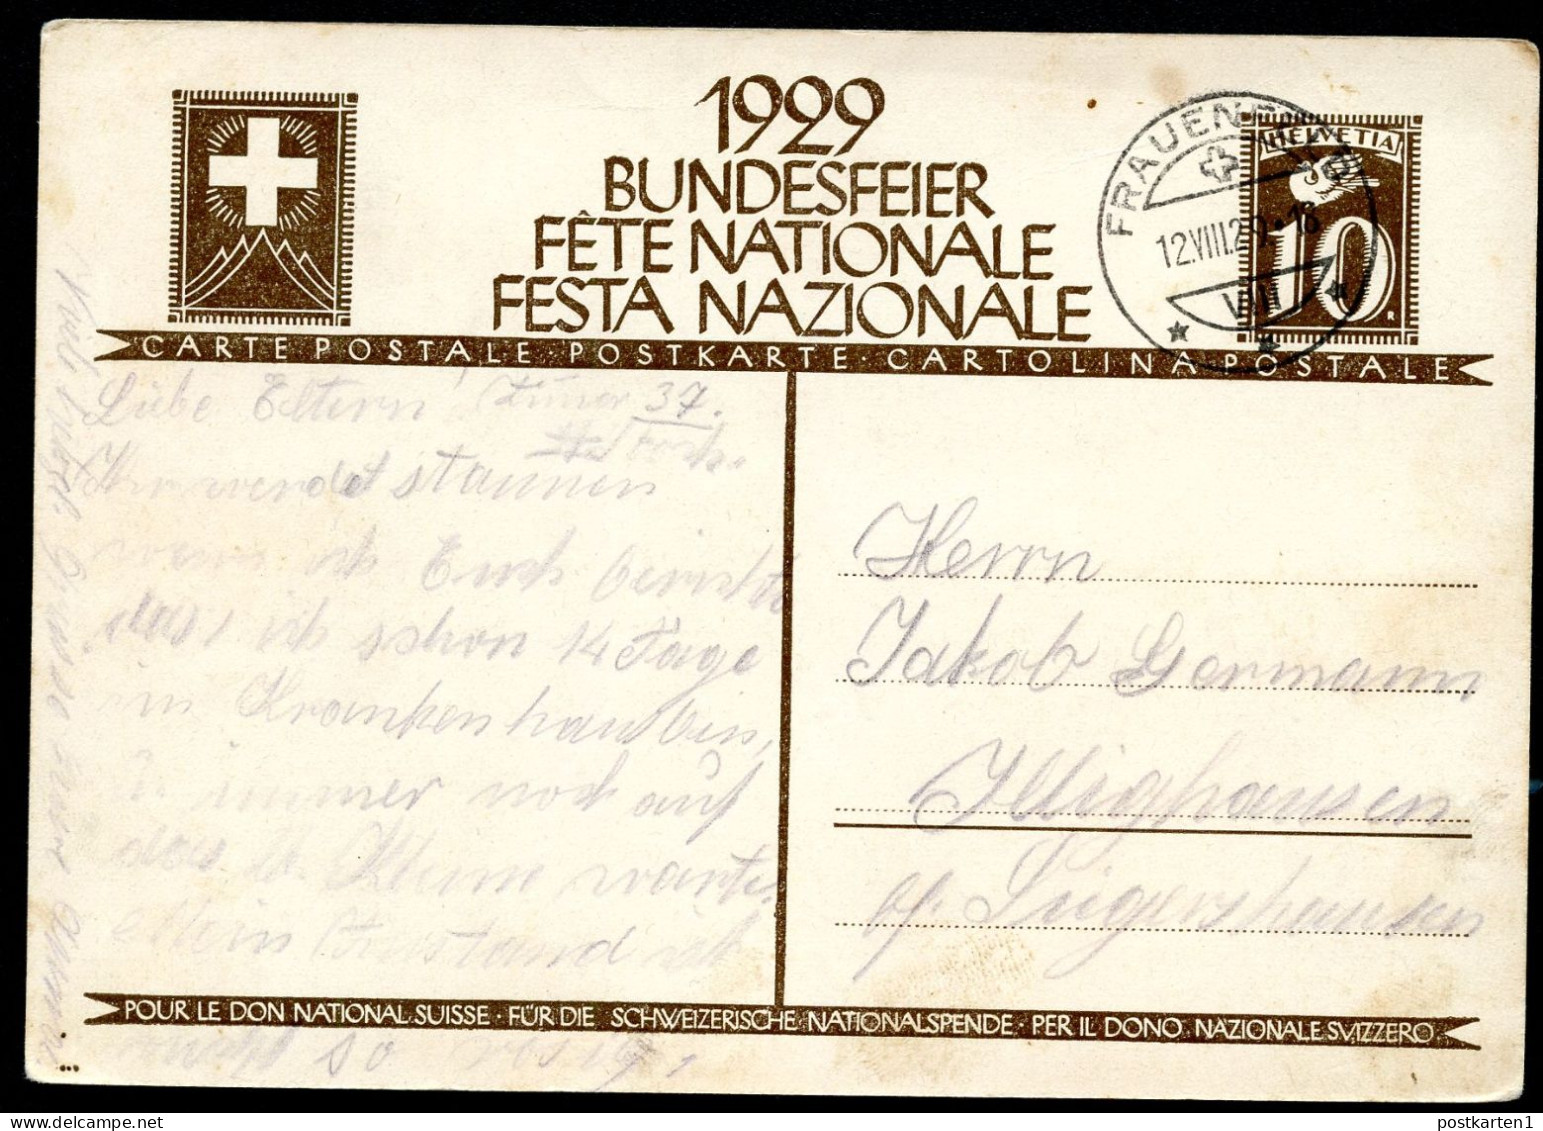 1929
BUNDESFEIER
FÊTE NATIONALE
FESTA NAZIONALE
HELVETIA
10
FRAUENFELD
12.VIII.29.-18
VIII
CARTE POSTALE · POSTKARTE · CARTOLINA POSTALE
Liebe Eltern! 37.
Ihr werdet staunen
wenn ich Euch berichte
das, ich schon 14 Tage
im Krankenhaus bin,
immer noch auf
das warte.
Mein Zustand ist
so rosig,
Viele Grüsse
Herrn
Jakob Germann
Illighausen
Siegershausen
POUR LE DON NATIONAL SUISSE · FÜR DIE SCHWEIZERISCHE NATIONALSPENDE · PER IL DONO NAZIONALE SVIZZERO
postkarten1